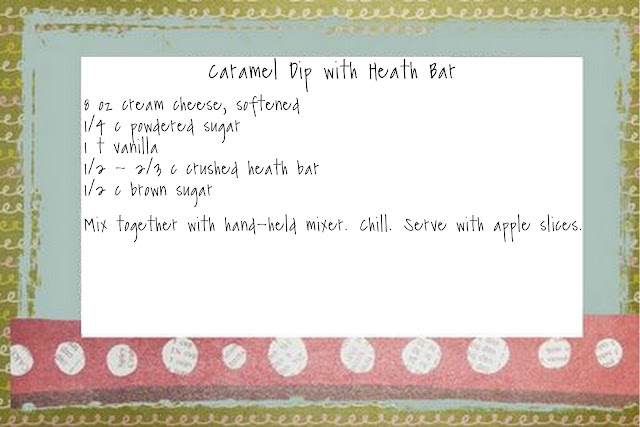 Caramel Dip with Heath Bar
8 oz cream cheese, softened
1/4 c powdered sugar
1 t vanilla
1/2 - 2/3 c crushed heath bar
1/2 c brown sugar
Mix together with hand-held mixer. Chill. Serve with apple slices.